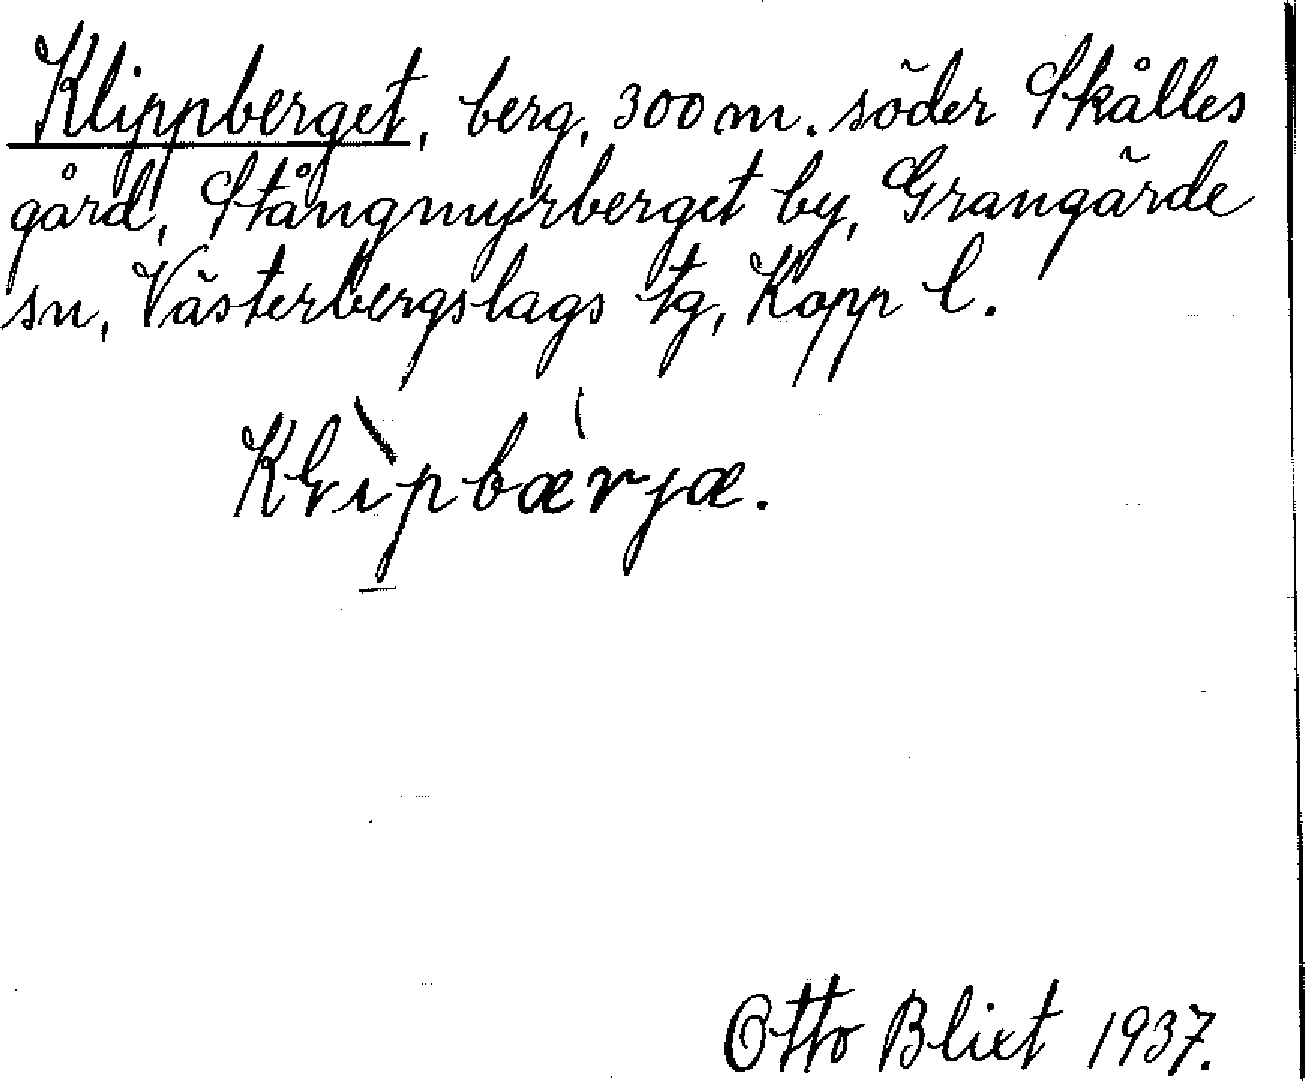 Klippberget, berg, 300 m. söder Skålles
gård, Stångmyrberget by, Grangärde
sn, Västerbergslags tg, Kopp l.
Klìpbærjæ.
Otto Blixt 1937.